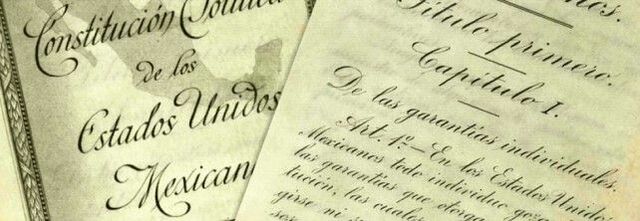 Constitución Política
de los
Estados Unidos
Mexicano
Título primero.
Capítulo I.
De las garantías individuales.
Art. 1º.—En los Estados Unido
Mexicanos todo individuo go
las garantías que otorg
lución, las cuales
girse ni